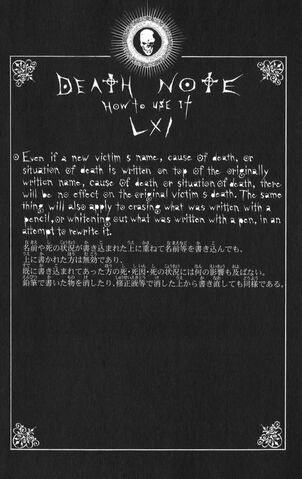 DEATH NOTE
HOW TO USE IT
LXI
Even if a new victim s name, cause of death, or
situation of death is written on top of the originally
written name, cause of death or situation of death, there
will be no effect on the original victim s death. The same
thing will also apply to erasing what was written with a
pencil, or whitening out what was written with a pen, in an
attempt to rewrite it.
名前や死の状況が書き込まれた上に重ねて名前等を書き込んでも、
上に書かれた方は無効であり、
既に書き込まれてあった方の死・死因・死の状況には何の影響も及ばない。
鉛筆で書いた物を消したり、修正液等で消した上から書き直しても同様である。